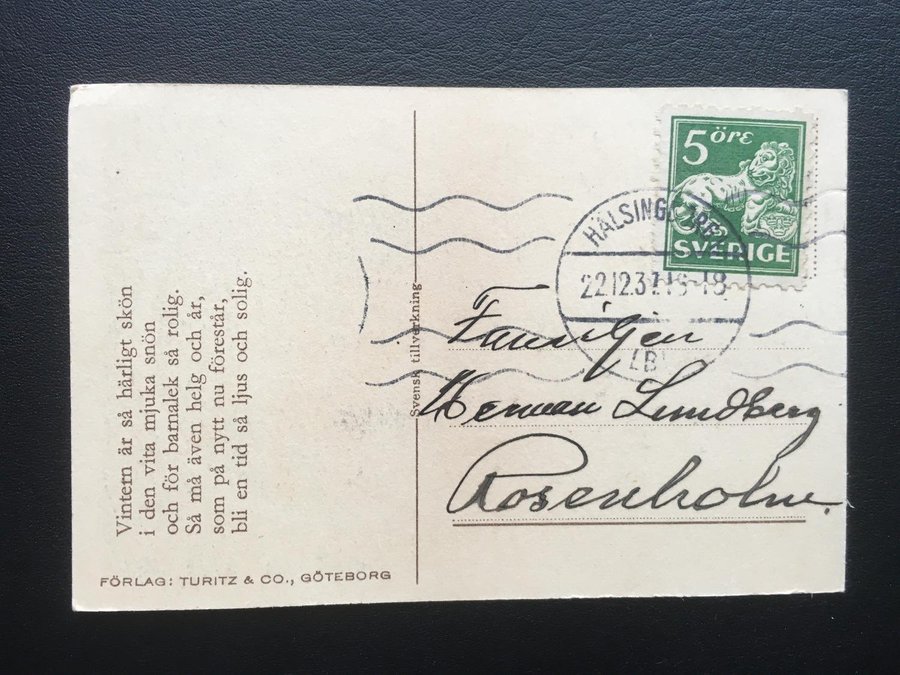 Vintern är så härligt skön
i den vita mjuka snön
och för barnalek så rolig.
Så må även helg och år,
som på nytt nu förestår,
bli en tid så ljus och solig.
FÖRLAG: TURITZ & CO., GÖTEBORG
Svensk tillverkning
5 öre
SVERIGE
22.12.37 18-18
LBR
Familjen
Herman Lundberg
Rosenholm.